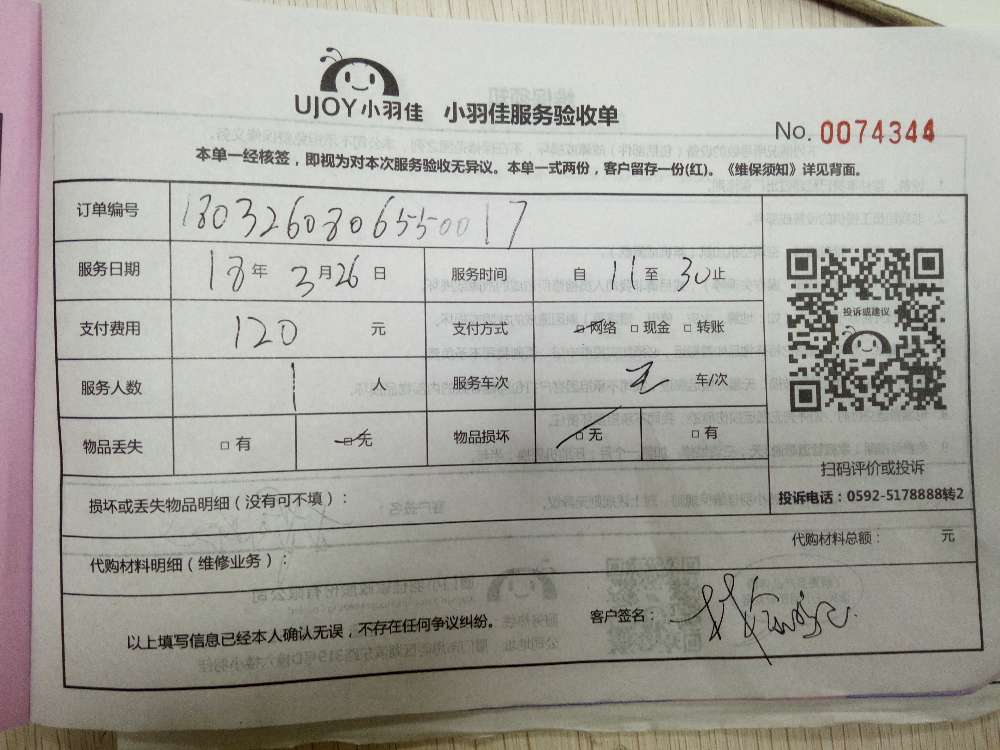 UJOY小羽佳 小羽佳服务验收单
No. 0074344
本单一经核签，即视为对本次服务验收无异议。本单一式两份，客户留存一份(红)。《维保须知》详见背面。
订单编号 18032608065550017
服务日期 18年 3月26日 服务时间 自 11 至 30 止
投诉或建议
支付费用 120 元 支付方式 □网络 □现金 □转账
服务人数 1 人 服务车次 无 车/次
物品丢失 □有 □无 物品损坏 □无 □有
扫码评价或投诉
投诉电话：0592-5178888转2
损坏或丢失物品明细（没有可不填）：
代购材料明细（维修业务）：
代购材料总额： 元
以上填写信息已经本人确认无误，不存在任何争议纠纷。
客户签名：